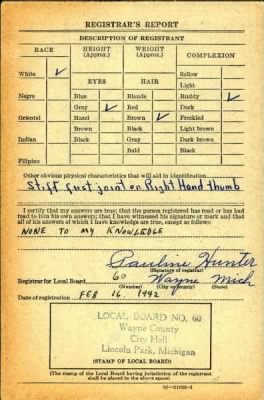 REGISTRAR'S REPORT
DESCRIPTION OF REGISTRANT
RACE
HEIGHT (Approx.)
WEIGHT (Approx.)
COMPLEXION
White ✓
EYES
HAIR
Sallow
Light
Negro
Blue
Blonde
Ruddy ✓
Gray ✓
Red
Dark
Oriental
Hazel
Brown ✓
Freckled
Brown
Black
Light brown
Indian
Black
Gray
Dark brown
Bald
Black
Filipino
Other obvious physical characteristics that will aid in identification
Stiff first joint on Right Hand thumb
I certify that my answers are true; that the person registered has read or has had
read to him his own answers; that I have witnessed his signature or mark and that
all of his answers of which I have knowledge are true, except as follows:
NONE TO MY KNOWLEDGE
Pauline Hunter
(Signature of registrar)
Registrar for Local Board 60 Wayne Mich
(Number) (City or county) (State)
Date of registration FEB 16, 1942
LOCAL BOARD NO. 60
Wayne County
City Hall
Lincoln Park, Michigan
(STAMP OF LOCAL BOARD)
(The stamp of the Local Board having jurisdiction of the registrant
shall be placed in the above space)